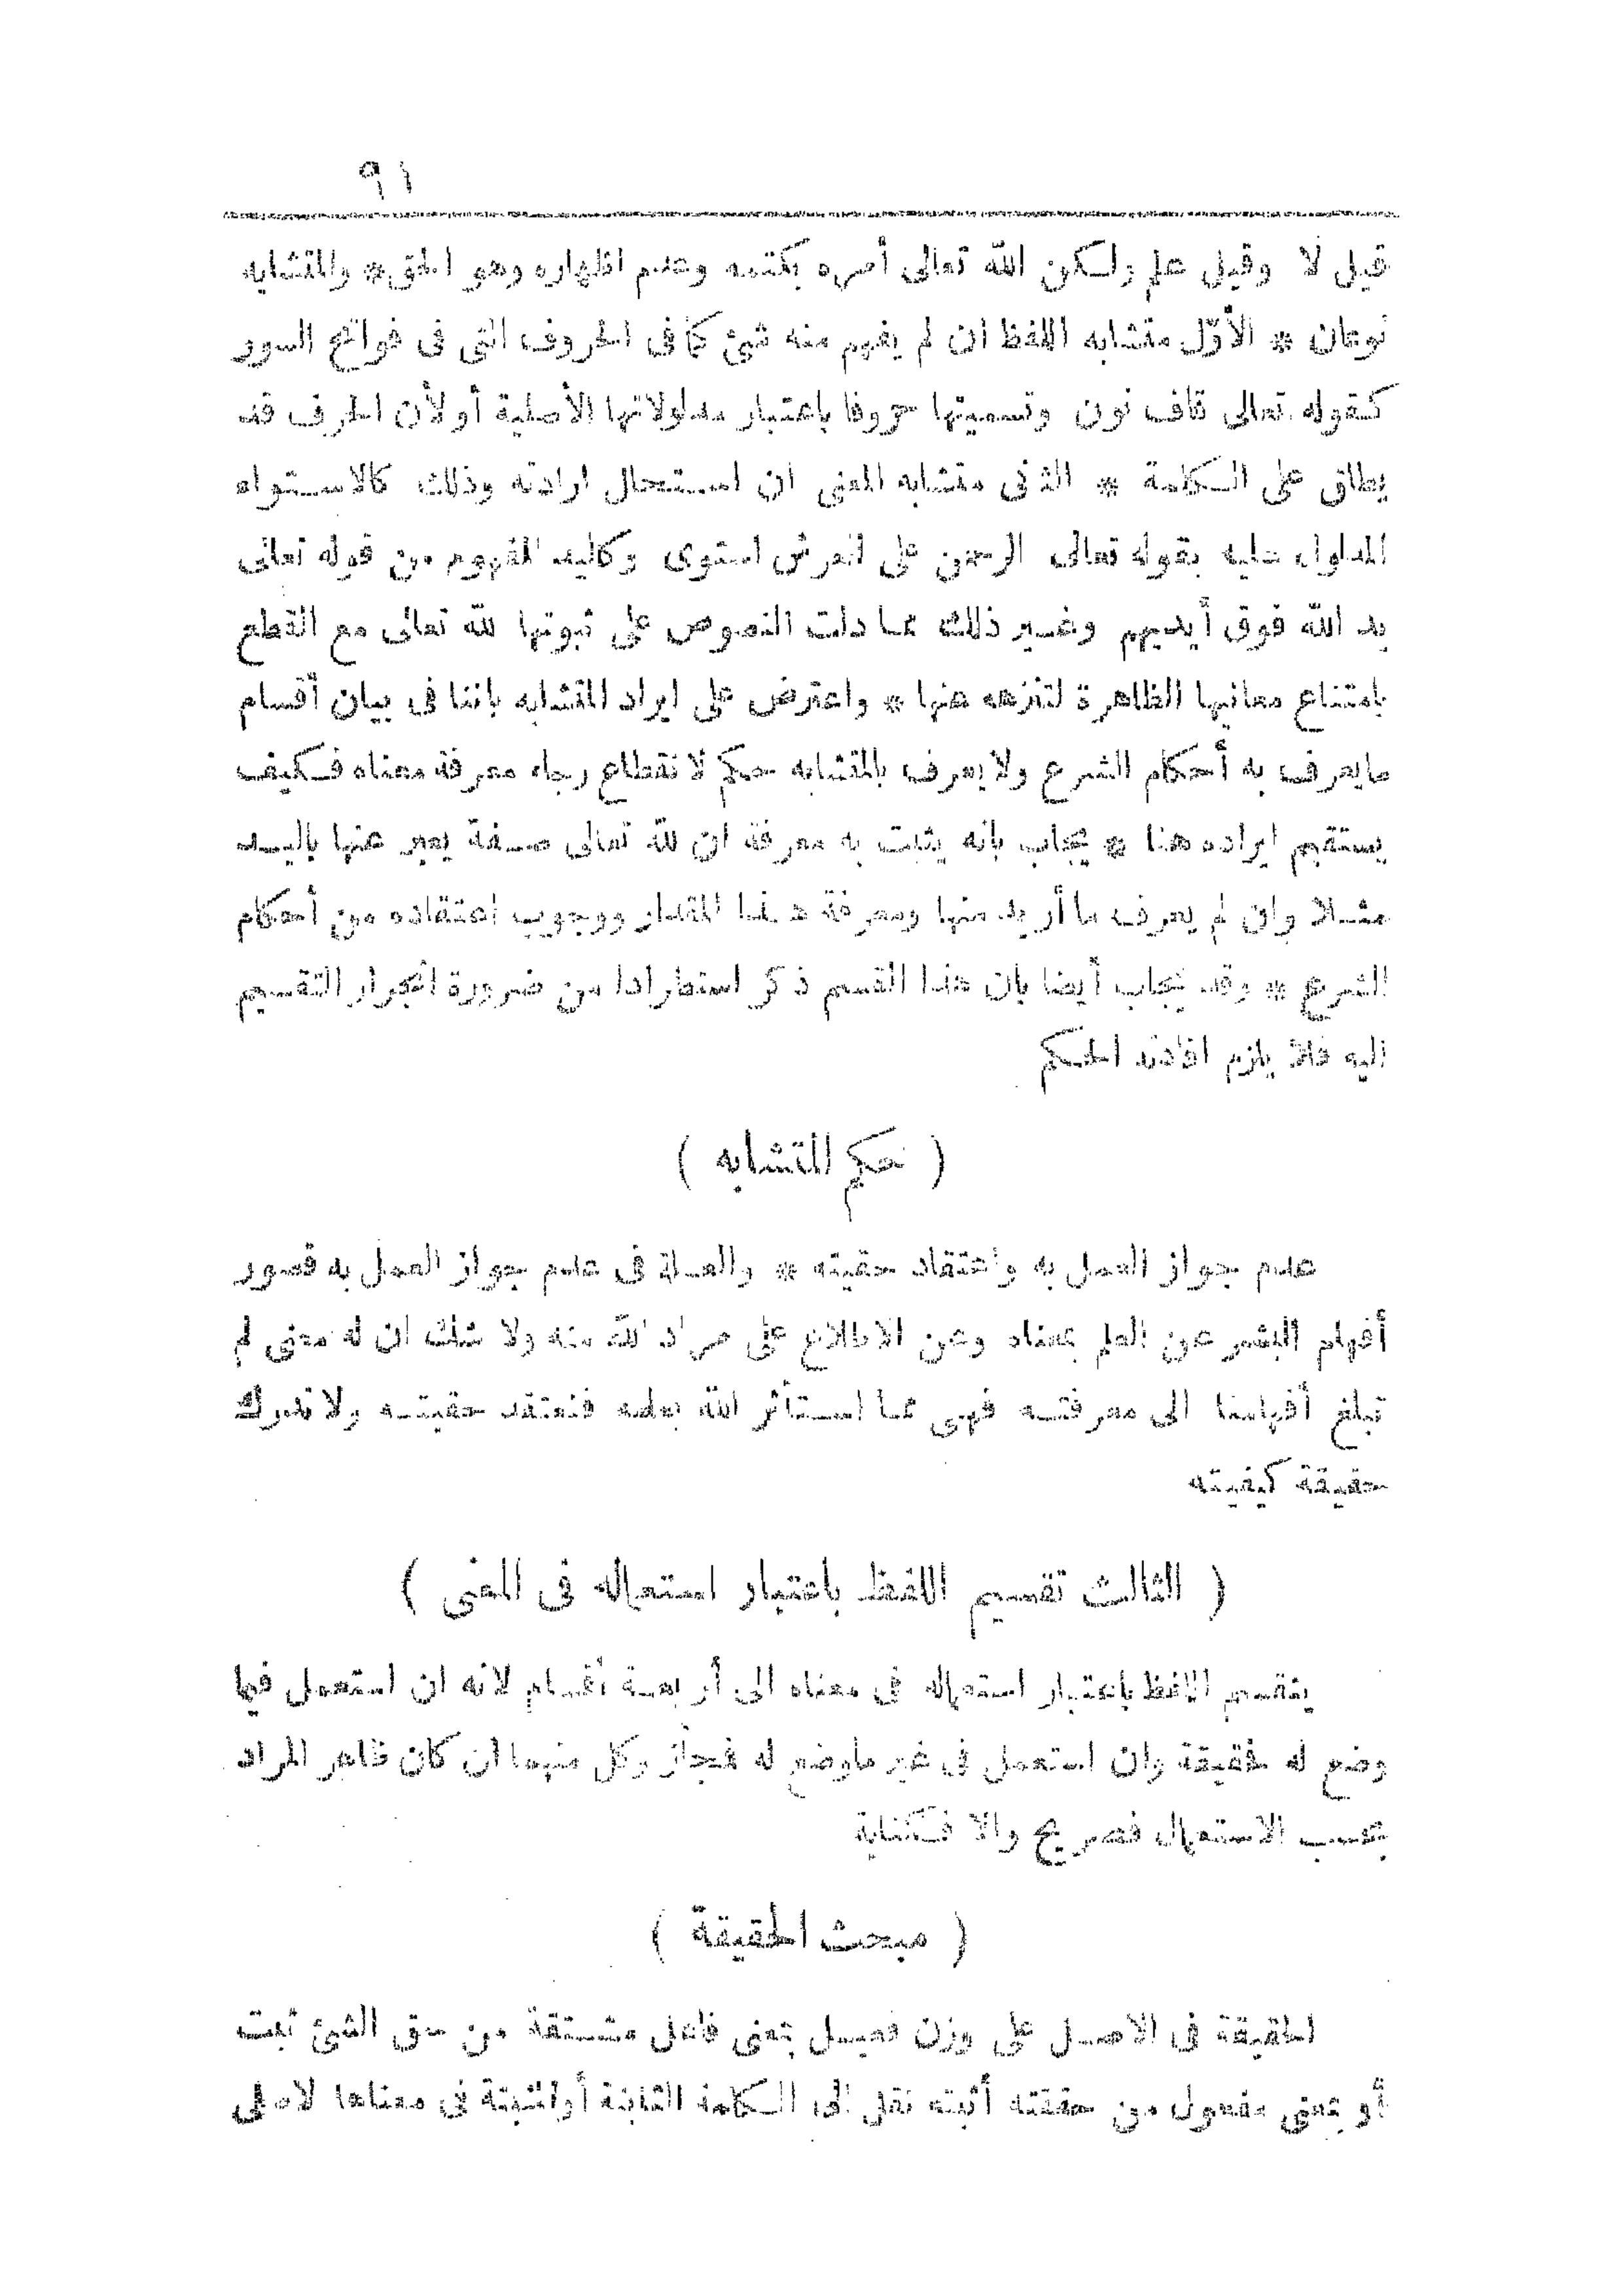 ٩١
قيل لا وقيل علم ولكن الله تعالى أمره بكتمه وعدم اظهاره وهو الحق * والمتشابه
نوعان * الأوّل متشابه اللفظ ان لم يفهم منه شئ كما فى الحروف التى فى فواتح السور
كقوله تعالى قاف نون وتسميتها حروفا باعتبار مدلولاتها الأصلية أو لأن الحرف قد
يطلق على الكلمة * الثانى متشابه المعنى ان استحال ارادته وذلك كالاستواء
المدلول عليه بقوله تعالى الرحمن على العرش استوى وكاليد المفهوم من قوله تعالى
يد الله فوق أيديهم وغير ذلك مما دلت النصوص على ثبوتها لله تعالى مع القطع
بامتناع معانيها الظاهرة لتنزهه عنها * واعترض على ايراد المتشابه باننا فى بيان أقسام
مايعرف به أحكام الشرع ولا يعرف بالمتشابه حكم لا نقطاع رجاء معرفة معناه فكيف
يستقيم ايراده هنا * يجاب بانه يثبت به معرفة ان لله تعالى صفة يعبر عنها باليد
مثلا وان لم يعرف ما أريد منها ومعرفة هذا المقدار ووجوب اعتقاده من أحكام
الشرع * وقد يجاب أيضا بان هذا القسم ذكر استطرادا من ضرورة انجرار التقسيم
اليه فلا يلزم افادته الحكم
( حكم المتشابه )
عدم جواز العمل به واعتقاد حقيته * والعلة فى عدم جواز العمل به قصور
أفهام البشر عن العلم بمعناه وعن الاطلاع على مراد الله منه ولا شك ان له معنى لم
تبلغ أفهامنا الى معرفته فهى مما استأثر الله بعلمه فنعتقد حقيته ولا ندرك
حقيقة كيفيته
( الثالث تقسيم اللفظ باعتبار استعماله فى المعنى )
ينقسم اللفظ باعتبار استعماله فى معناه الى أربعة أقسام لانه ان استعمل فيما
وضع له فحقيقة وان استعمل فى غير ماوضع له فمجاز وكل منهما ان كان ظاهر المراد
بحسب الاستعمال فصريح والا فكناية
( مبحث الحقيقة )
الحقيقة فى الاصل على وزن فعيل بمعنى فاعل مشتقة من حق الشئ ثبت
أو بمعنى مفعول من حققته أثبته نقل الى الكلمة الثابتة أو المثبتة فى معناها الاصلى